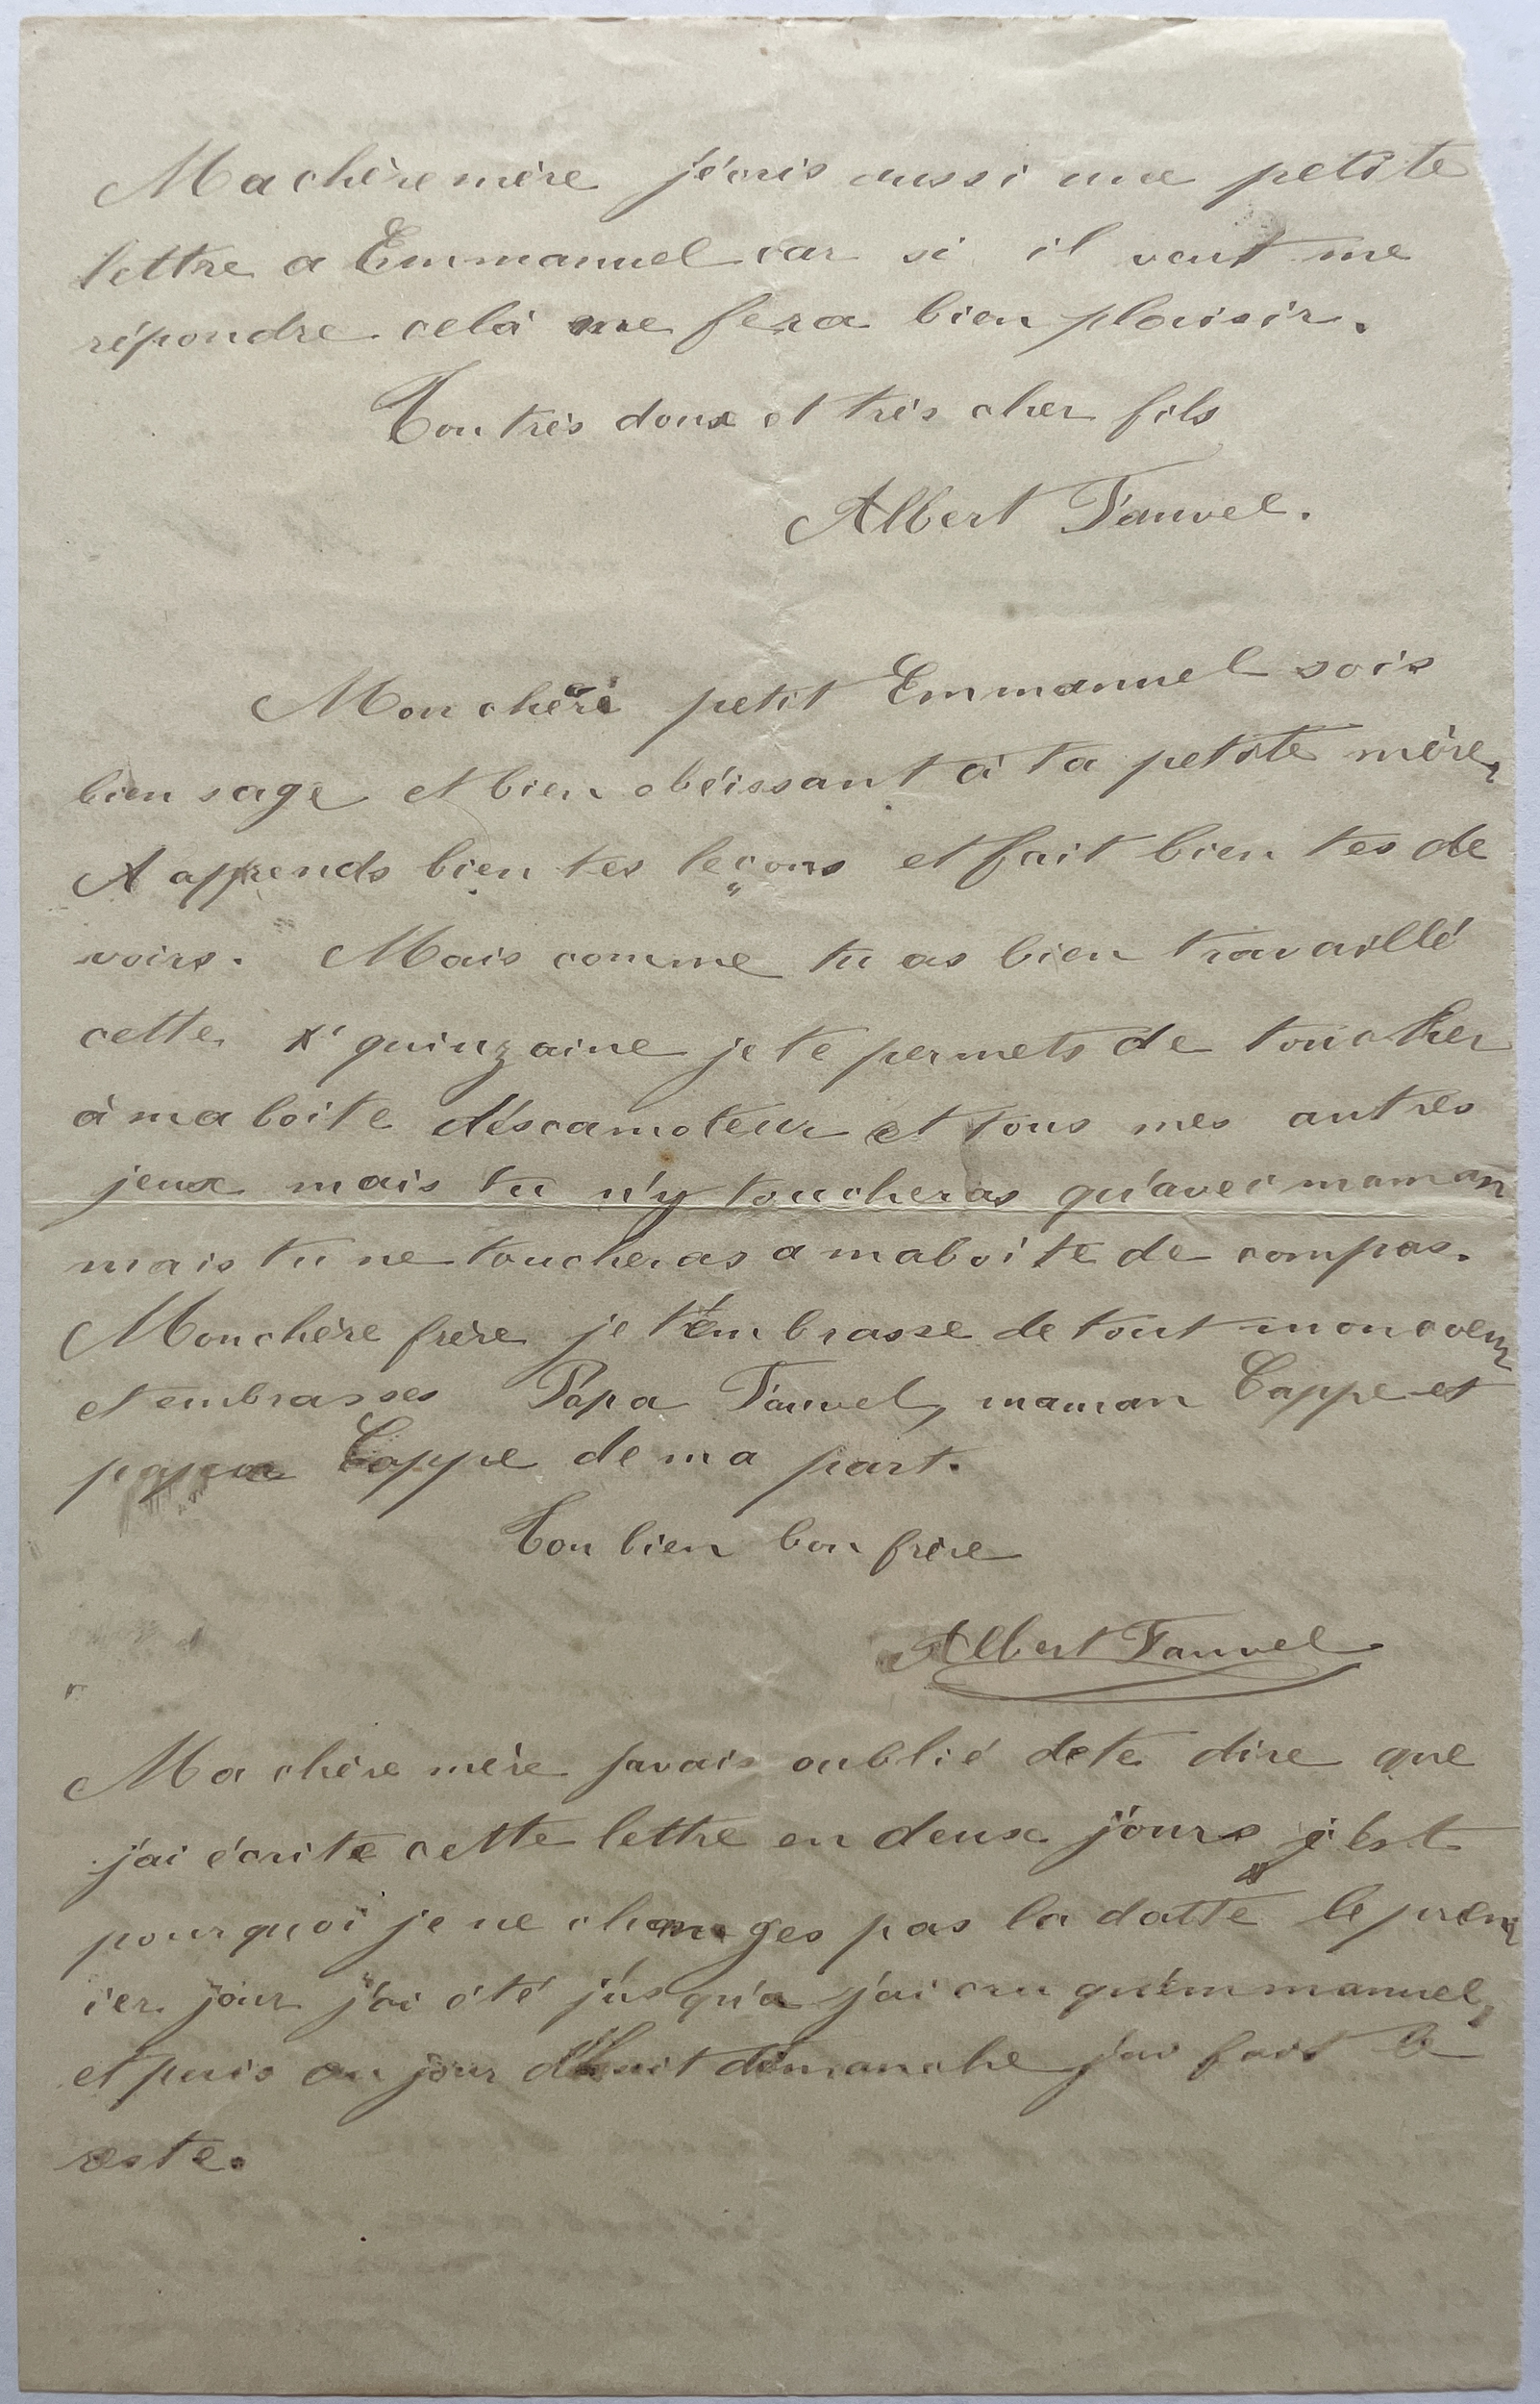 Ma chère mère j'écris aussi une petite
lettre a Emmanuel car si il veut me
répondre celà me fera bien plaisir.
Ton très doux et très cher fils
Albert Fauvel.
Mon chère petit Emmanuel sois
bien sage et bien obéissant à ta petite mère,
A apprends bien tes leçons et fait bien tes de
voirs. Mais comme tu as bien travaillé
cette quinzaine je te permets de toucher
à ma boite d'éscamoteur et tous mes autres
jeux mais tu n'y toucheras qu'avec maman
mais tu ne toucheras a ma boite de compas.
Mon chère frère je t'embrasse de tout mon coeur
et embrasses Papa Fauvel, maman Cappe et
papa Cappe de ma part.
Ton bien bon frère
Albert Fauvel
Ma chère mère javais oublié de te dire que
j'ai écrite cette lettre en deux jours c'est
pourquoi je ne changes pas la datte le prem
ier jour j'ai été jusqu'a j'ai cru qu'emmanuel,
et puis au jour d'huit dimanche j'ai fait le
reste.